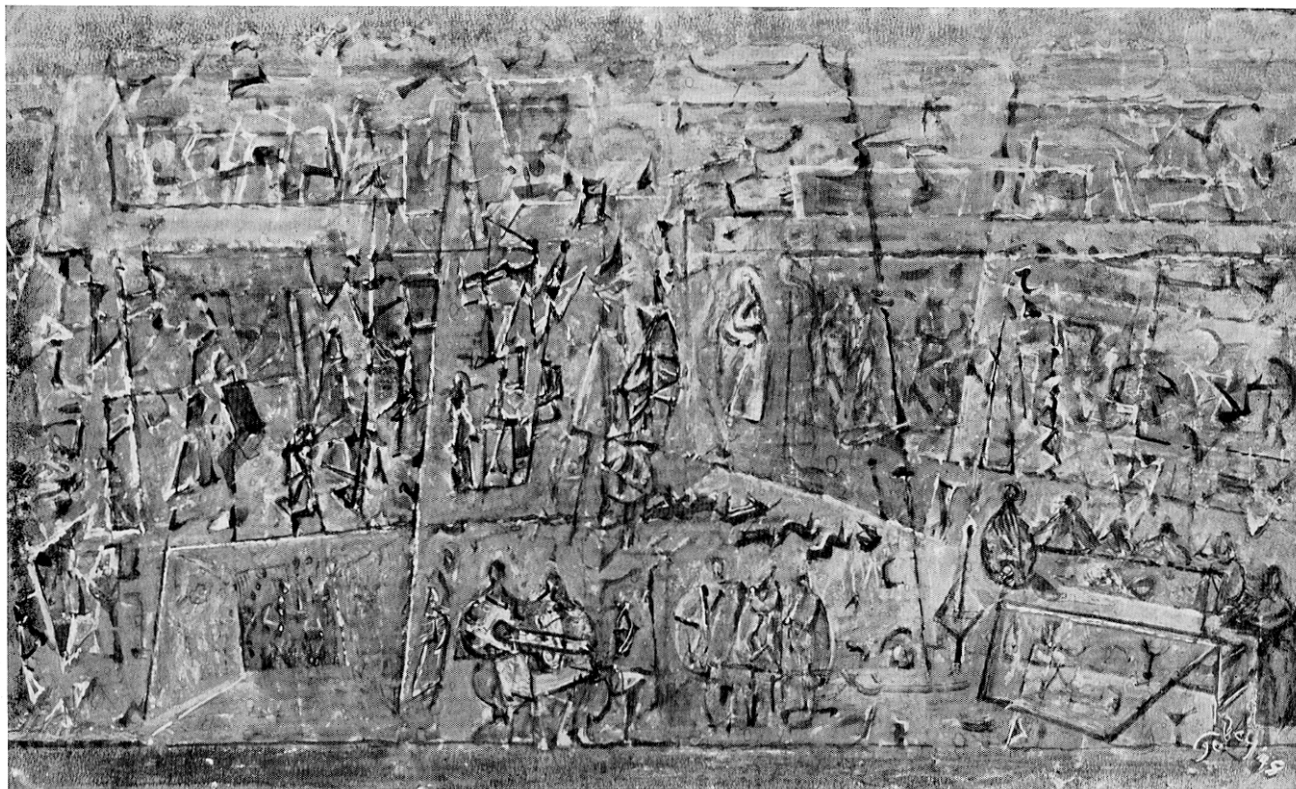 Tobey 48